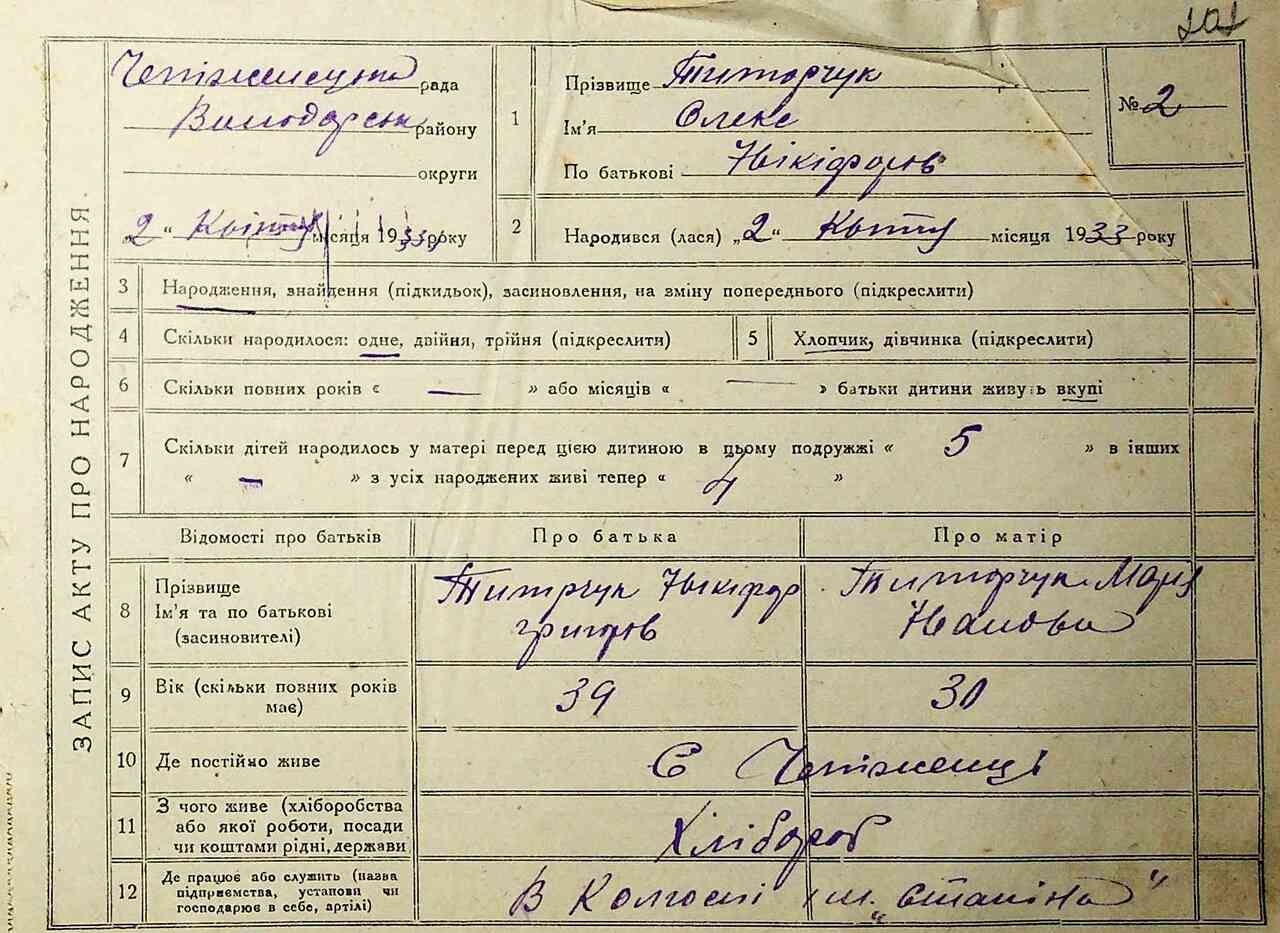 101
ЗАПИС АКТУ ПРО НАРОДЖЕННЯ.
Чепіжинська рада
Володарськ району
округи
„2“ Квітня місяця 1933 року
1
Прізвище Титорчук
Ім'я Олекс
По батькові Нікіфоров
№ 2
2
Народився (лася) „2“ Квітня місяця 1933 року
3 Народження, знайдення (підкидьок), засиновлення, на зміну попереднього (підкреслити)
4 Скільки народилося: одне, двійня, трійня (підкреслити)
5 Хлопчик, дівчинка (підкреслити)
6 Скільки повних років « — » або місяців « — » батьки дитини живуть вкупі
7 Скільки дітей народилось у матері перед цією дитиною в цьому подружжі « 5 » в інших
« – » з усіх народжених живі тепер « 4 »
Відомості про батьків Про батька Про матір
8 Прізвище
Ім'я та по батькові
(засиновителі)
Титрчук Нікіфор
григоров
Титорчук Марія
Іванова
9 Вік (скільки повних років
має)
39 30
10 Де постійно живе С Чепіженці
11 З чого живе (хліборобства
або якої роботи, посади
чи коштами рідні, держави
Хлібороб
12 Де працює або служить (назва
підприємства, установи чи
господарює в себе, артілі)
В Колгоспі ім. „Сталіна“